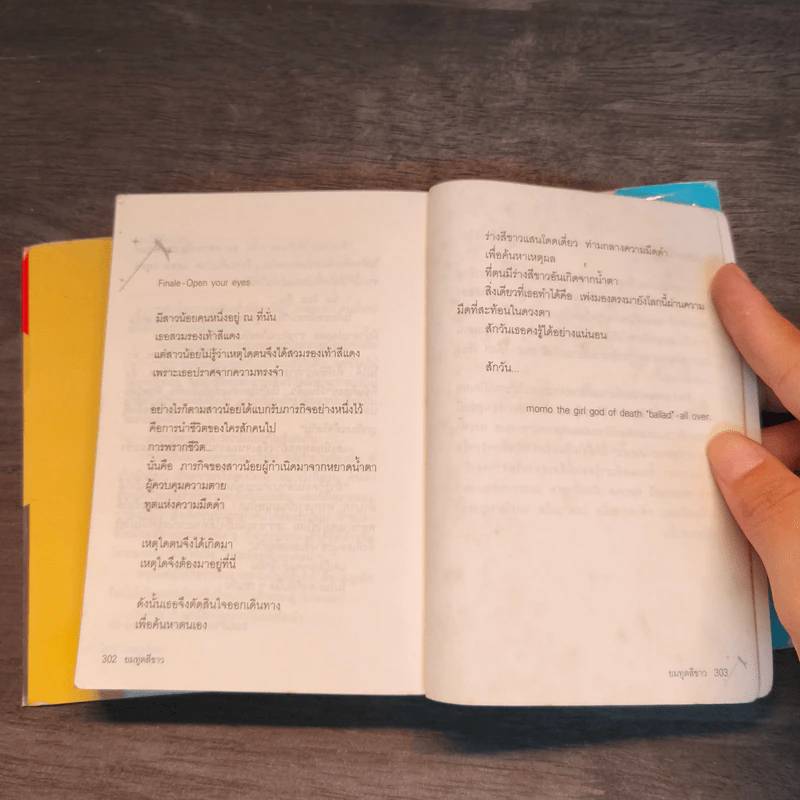 Finale-Open your eyes
มีสาวน้อยคนหนึ่งอยู่ ณ ที่นั่น
เธอสวมรองเท้าสีแดง
แต่สาวน้อยไม่รู้ว่าเหตุใดตนจึงได้สวมรองเท้าสีแดง
เพราะเธอปราศจากความทรงจำ
อย่างไรก็ตามสาวน้อยได้แบกรับภารกิจอย่างหนึ่งไว้
คือการนำชีวิตของใครสักคนไป
การพรากชีวิต...
นั่นคือ ภารกิจของสาวน้อยผู้กำเนิดมาจากหยาดน้ำตา
ผู้ควบคุมความตาย
ทูตแห่งความมืดดำ
เหตุใดตนจึงได้เกิดมา
เหตุใดจึงต้องมาอยู่ที่นี่
ดังนั้นเธอจึงตัดสินใจออกเดินทาง
เพื่อค้นหาตนเอง
302 ยมทูตสีขาว
ร่างสีขาวแสนโดดเดี่ยว ท่ามกลางความมืดดำ
เพื่อค้นหาเหตุผล
ที่ตนมีร่างสีขาวอันเกิดจากน้ำตา
สิ่งเดียวที่เธอทำได้คือ เพ่งมองตรงมายังโลกนี้ผ่านความ
มืดที่สะท้อนในดวงตา
สักวันเธอคงรู้ได้อย่างแน่นอน
สักวัน...
momo the girl god of death "ballad"-all over.
ยมทูตสีขาว 303